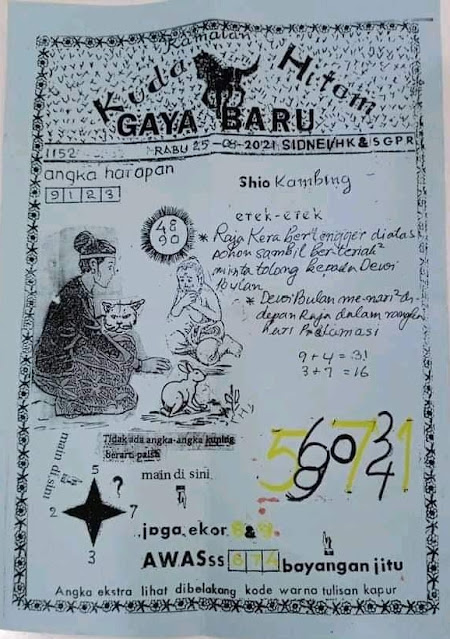 Ramalan
Kuda Hitam
GAYA BARU
1152 RABU 25-08-2021 SIDNEI/HK & SGPR
angka harapan
9 1 2 3
Shio Kambing
48
90
erek-erek
* Raja Kera bertengger diatas
pohon sambil berteriak²
minta tolong kepada Dewi
Bulan
* Dewi Bulan me-nari² di-
depan Raja dalam rangka
hari Proklamasi
9 + 4 = 31
3 + 7 = 16
Tidak ada angka-angka kuning
berarti palsu
main di sini
main di sini
5
?
2
7
3
5 7 1
6 0 3
8 4
jaga ekor 8 & 9
AWASss 8 7 4 bayangan jitu
Angka ekstra lihat dibelakang kode warna tulisan kapur